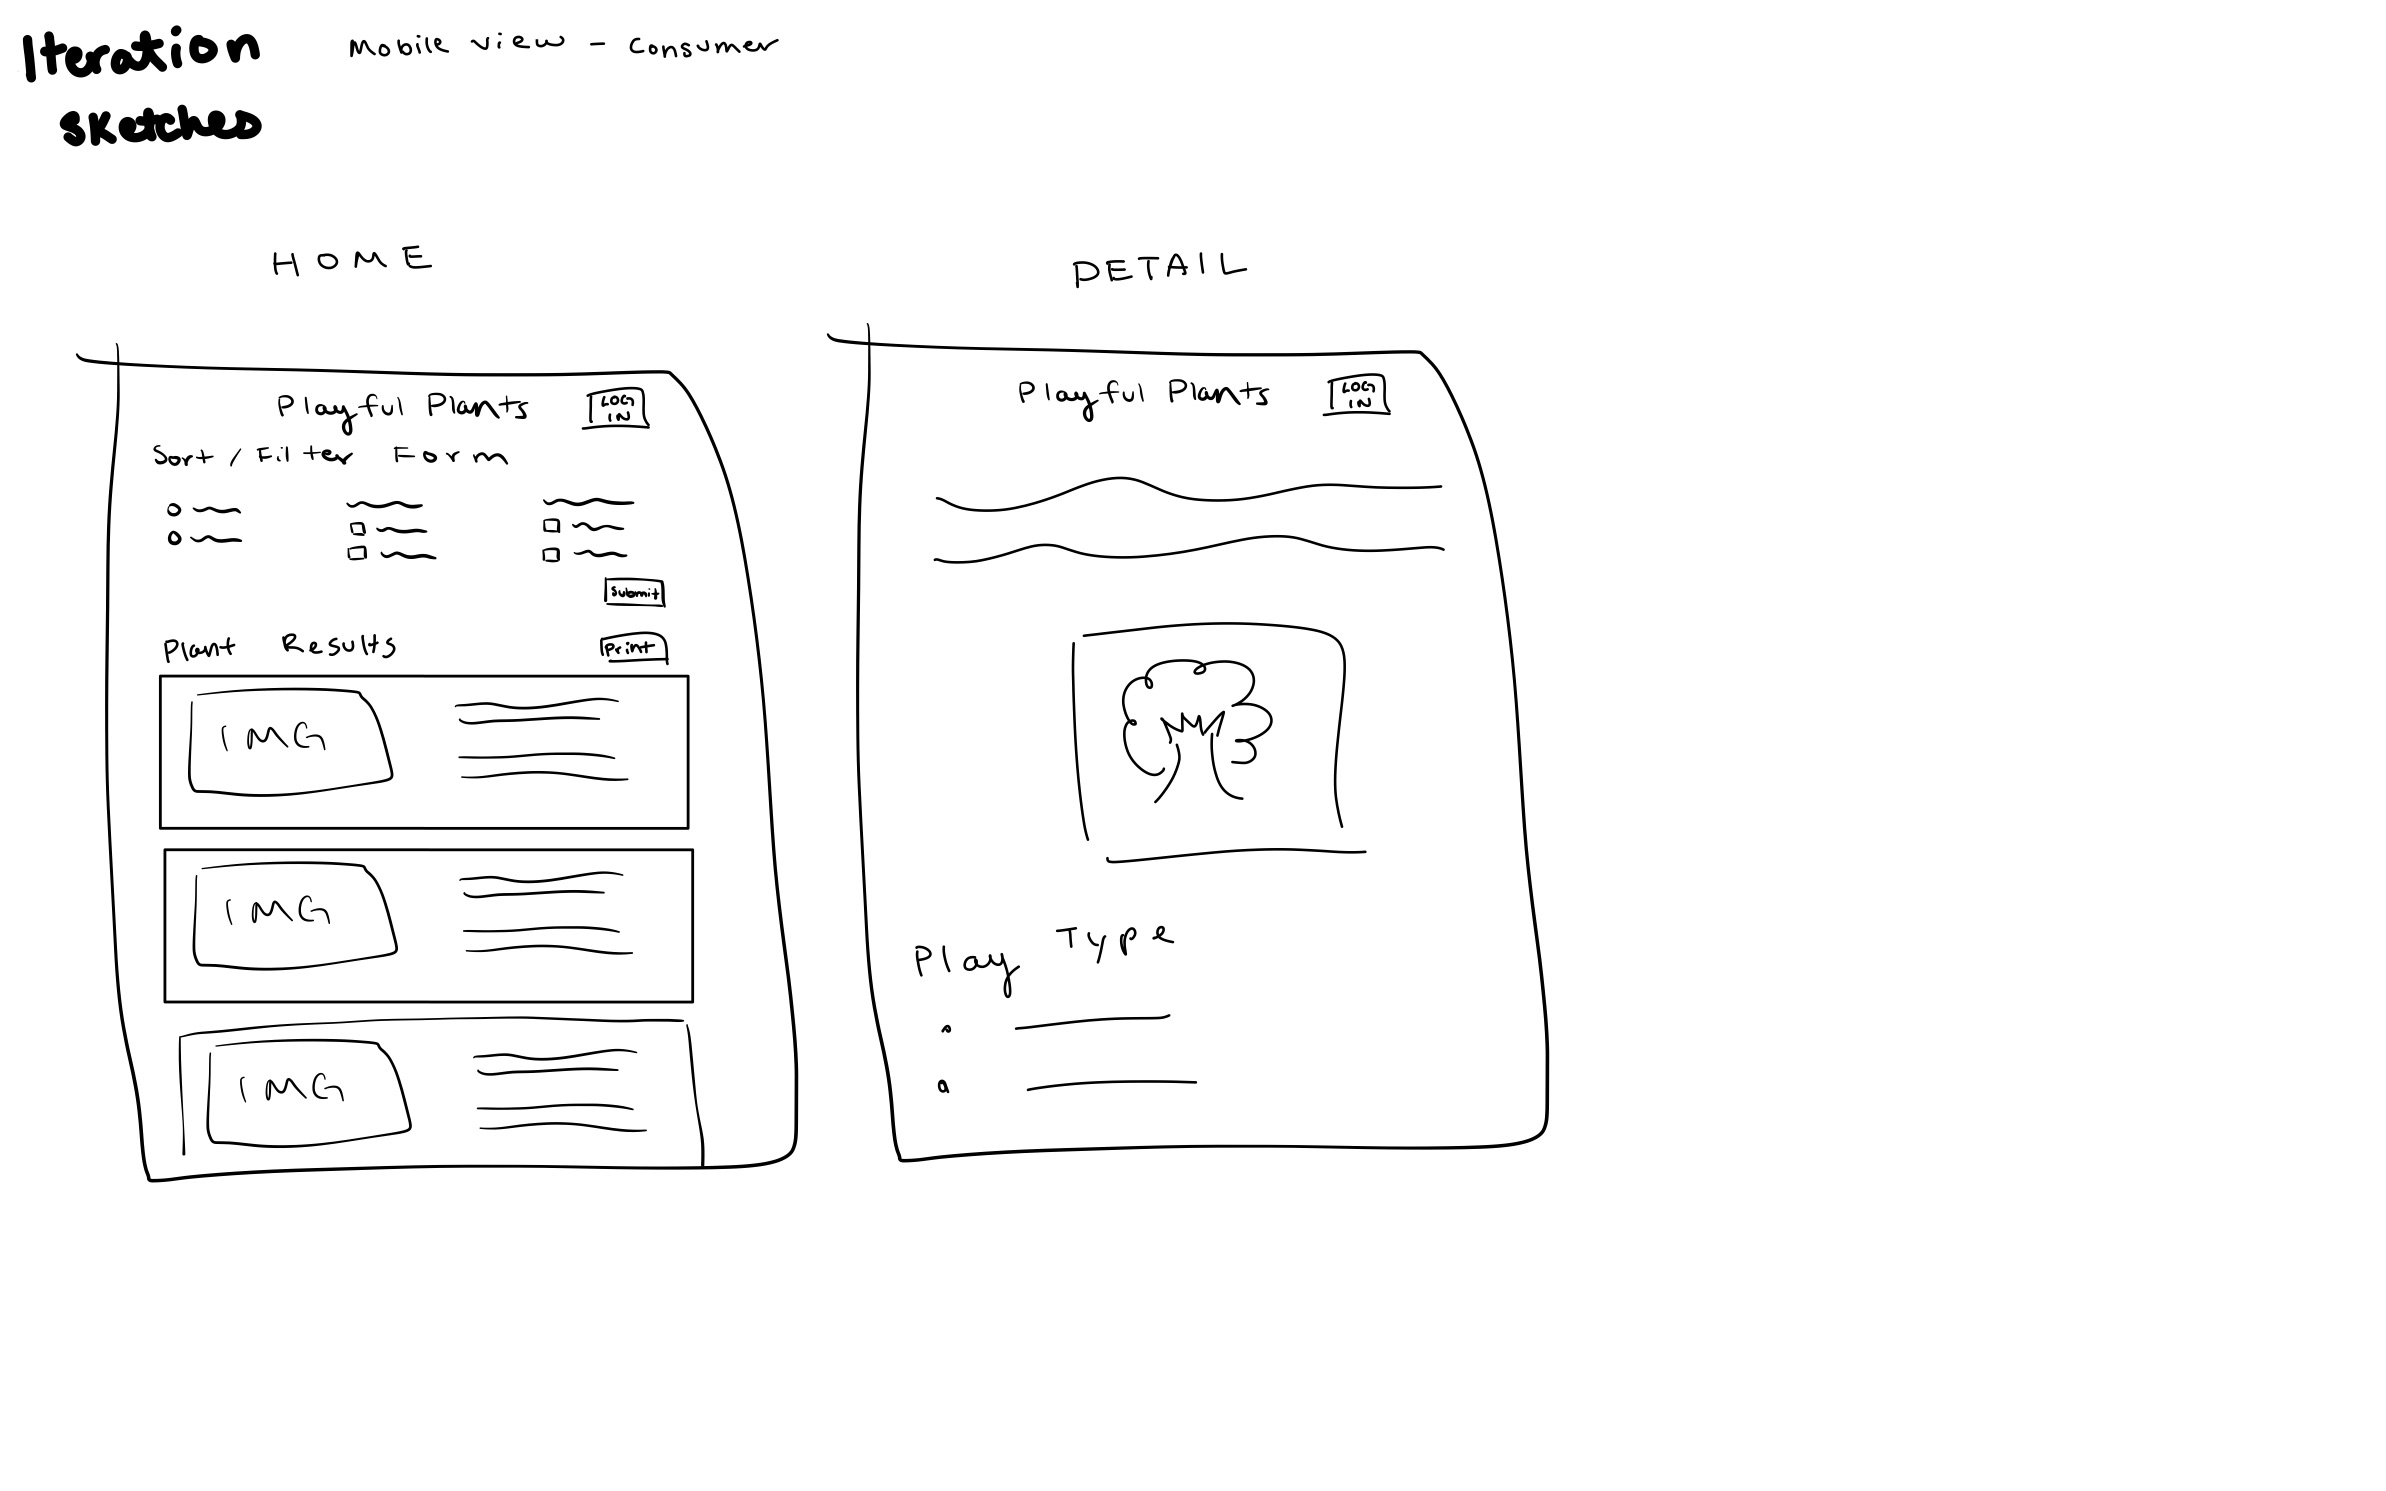 Iteration
Sketches
Mobile view - Consumer
HOME
Playful Plants
LOG
IN
Sort / Filter Form
Submit
Plant Results
Print
IMG
IMG
IMG
DETAIL
Playful Plants
LOG
IN
Play Type